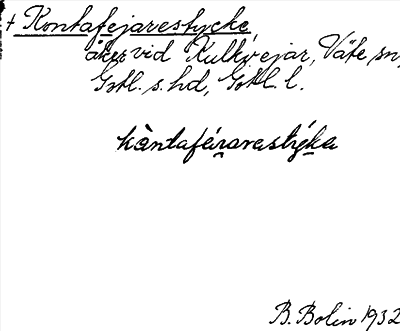 + Kontafejarestycke
åker vid Kulkvejar, Väte sn,
Gotl. s. hd, Gotl. l.
kòntafáravastýka
B. Bolin 1932